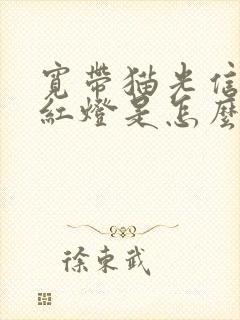 寬帶猫光信
紅燈是怎麼
徐東武